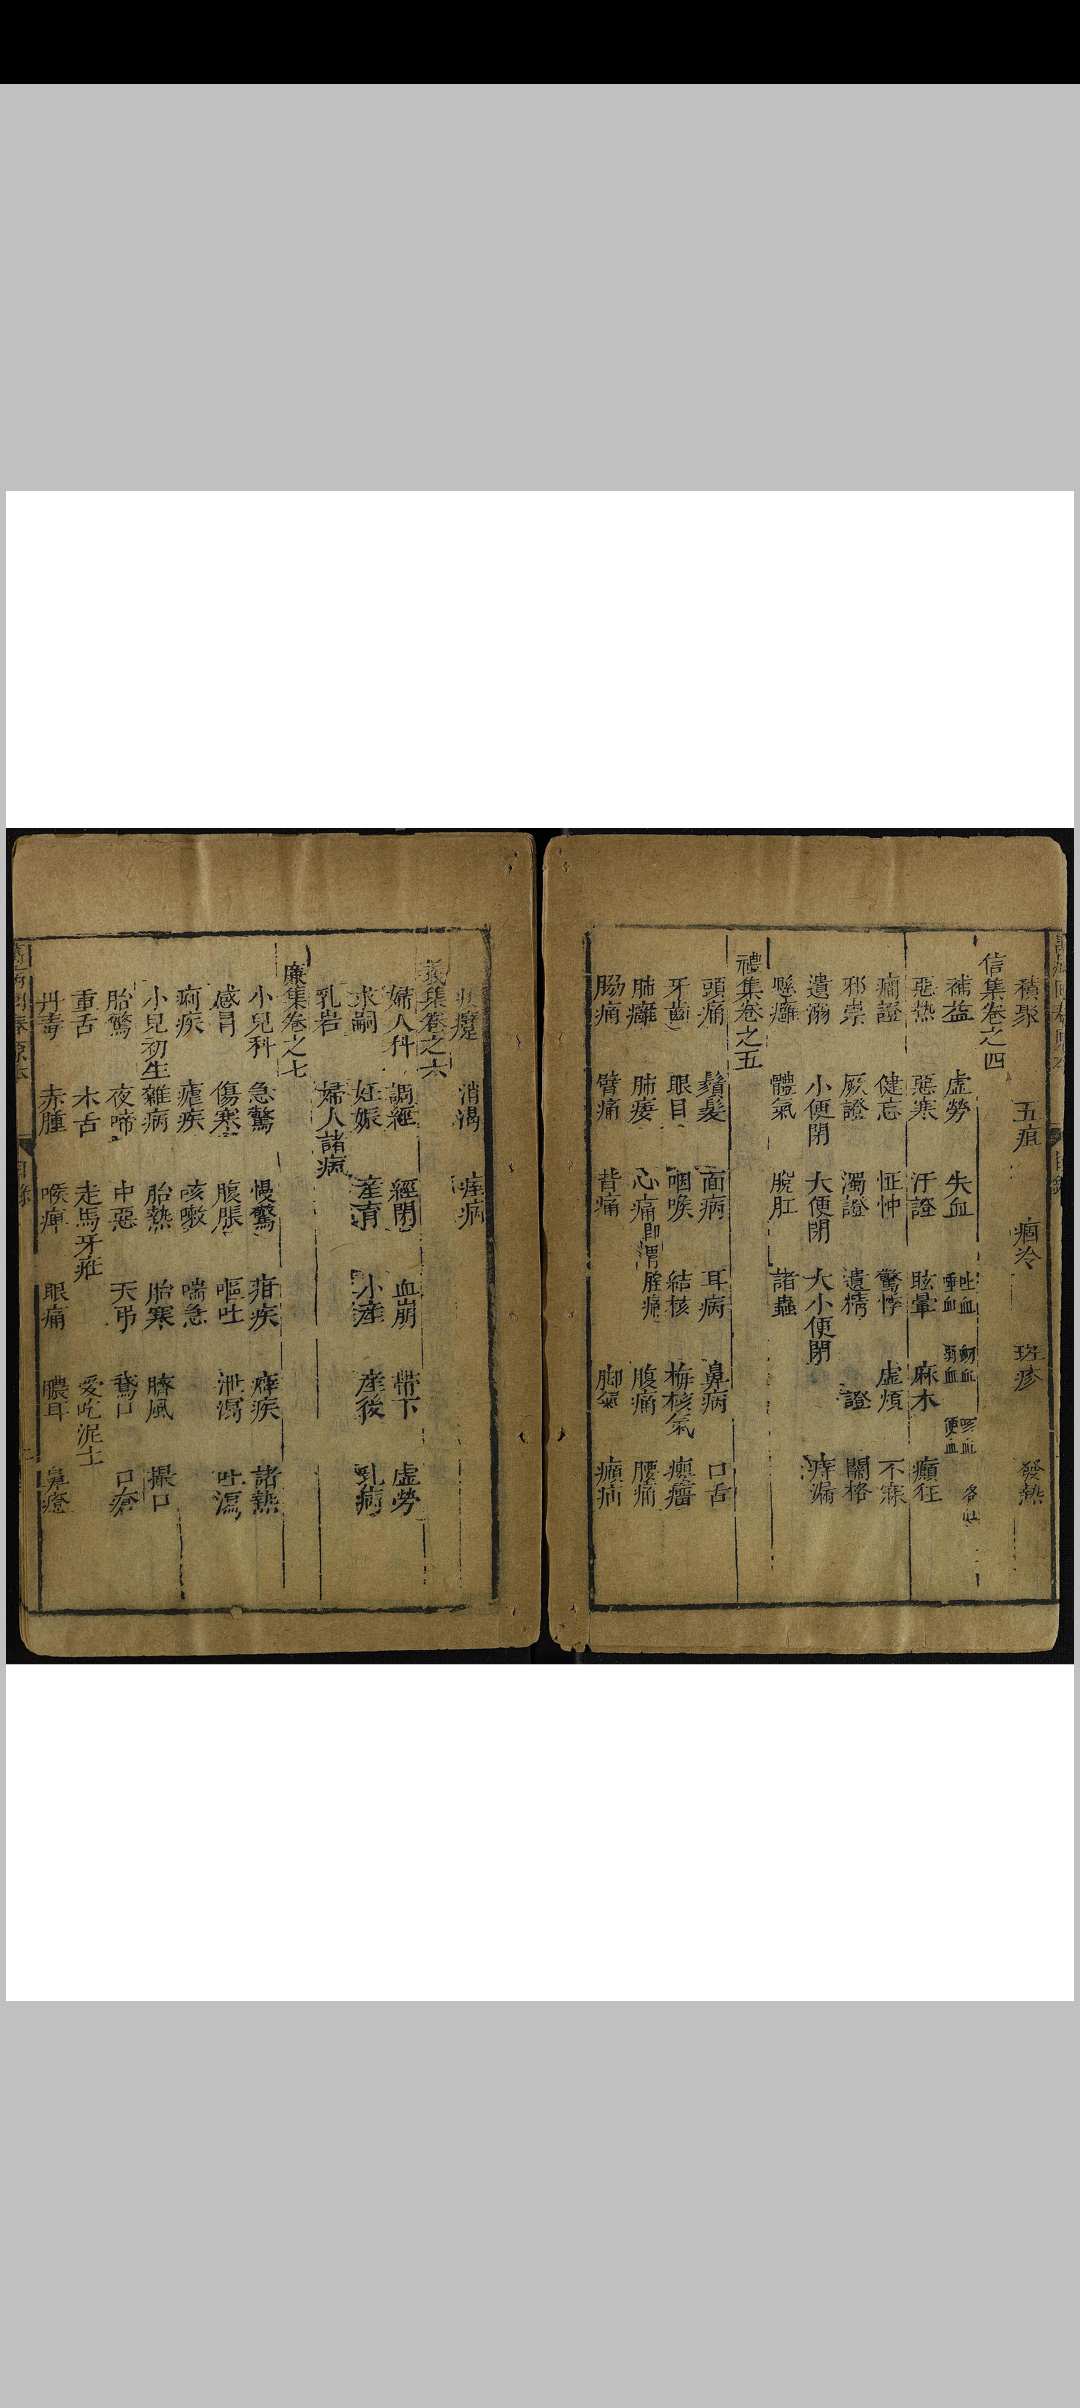 積聚 五疸 痼冷 斑疹 發熱
信集卷之四
補益 虛勞 失血 吐血 衄血 咳血 唾血 溺血 便血
惡熱 惡寒 汗證 眩暈 麻木 癲狂
癎證 健忘 怔忡 驚悸 虛煩 不寐
邪祟 厥證 濁證 遺精 證 關格
遺溺 小便閉 大便閉 大小便閉 痔漏
懸癰 體氣 脫肛 諸蟲
禮集卷之五
頭痛 鬚髮 面病 耳病 鼻病 口舌
牙齒 眼目 咽喉 結核 梅核氣 癭瘤
肺癰 肺痿 心痛 即胃脘痛 腹痛 腰痛
脇痛 臂痛 背痛 脚氣
消渴 痓病
義集卷之六
婦人科 調經 經閉 血崩 帶下 虛勞
求嗣 妊娠 產育 小產 產後 乳病
乳岩 婦人諸病
廉集卷之七
小兒科 急驚 慢驚 疳疾 癖疾 諸熱
感冒 傷寒 腹脹 嘔吐 泄瀉 吐瀉
痢疾 瘧疾 咳嗽 喘急
小兒初生 雜病 胎熱 胎寒 臍風 撮口
胎驚 夜啼 中惡 天弔 鵞口 口瘡
重舌 木舌 走馬牙疳 愛吃泥土
丹毒 赤腫 喉痺 眼痛 膿耳 鼻瘡